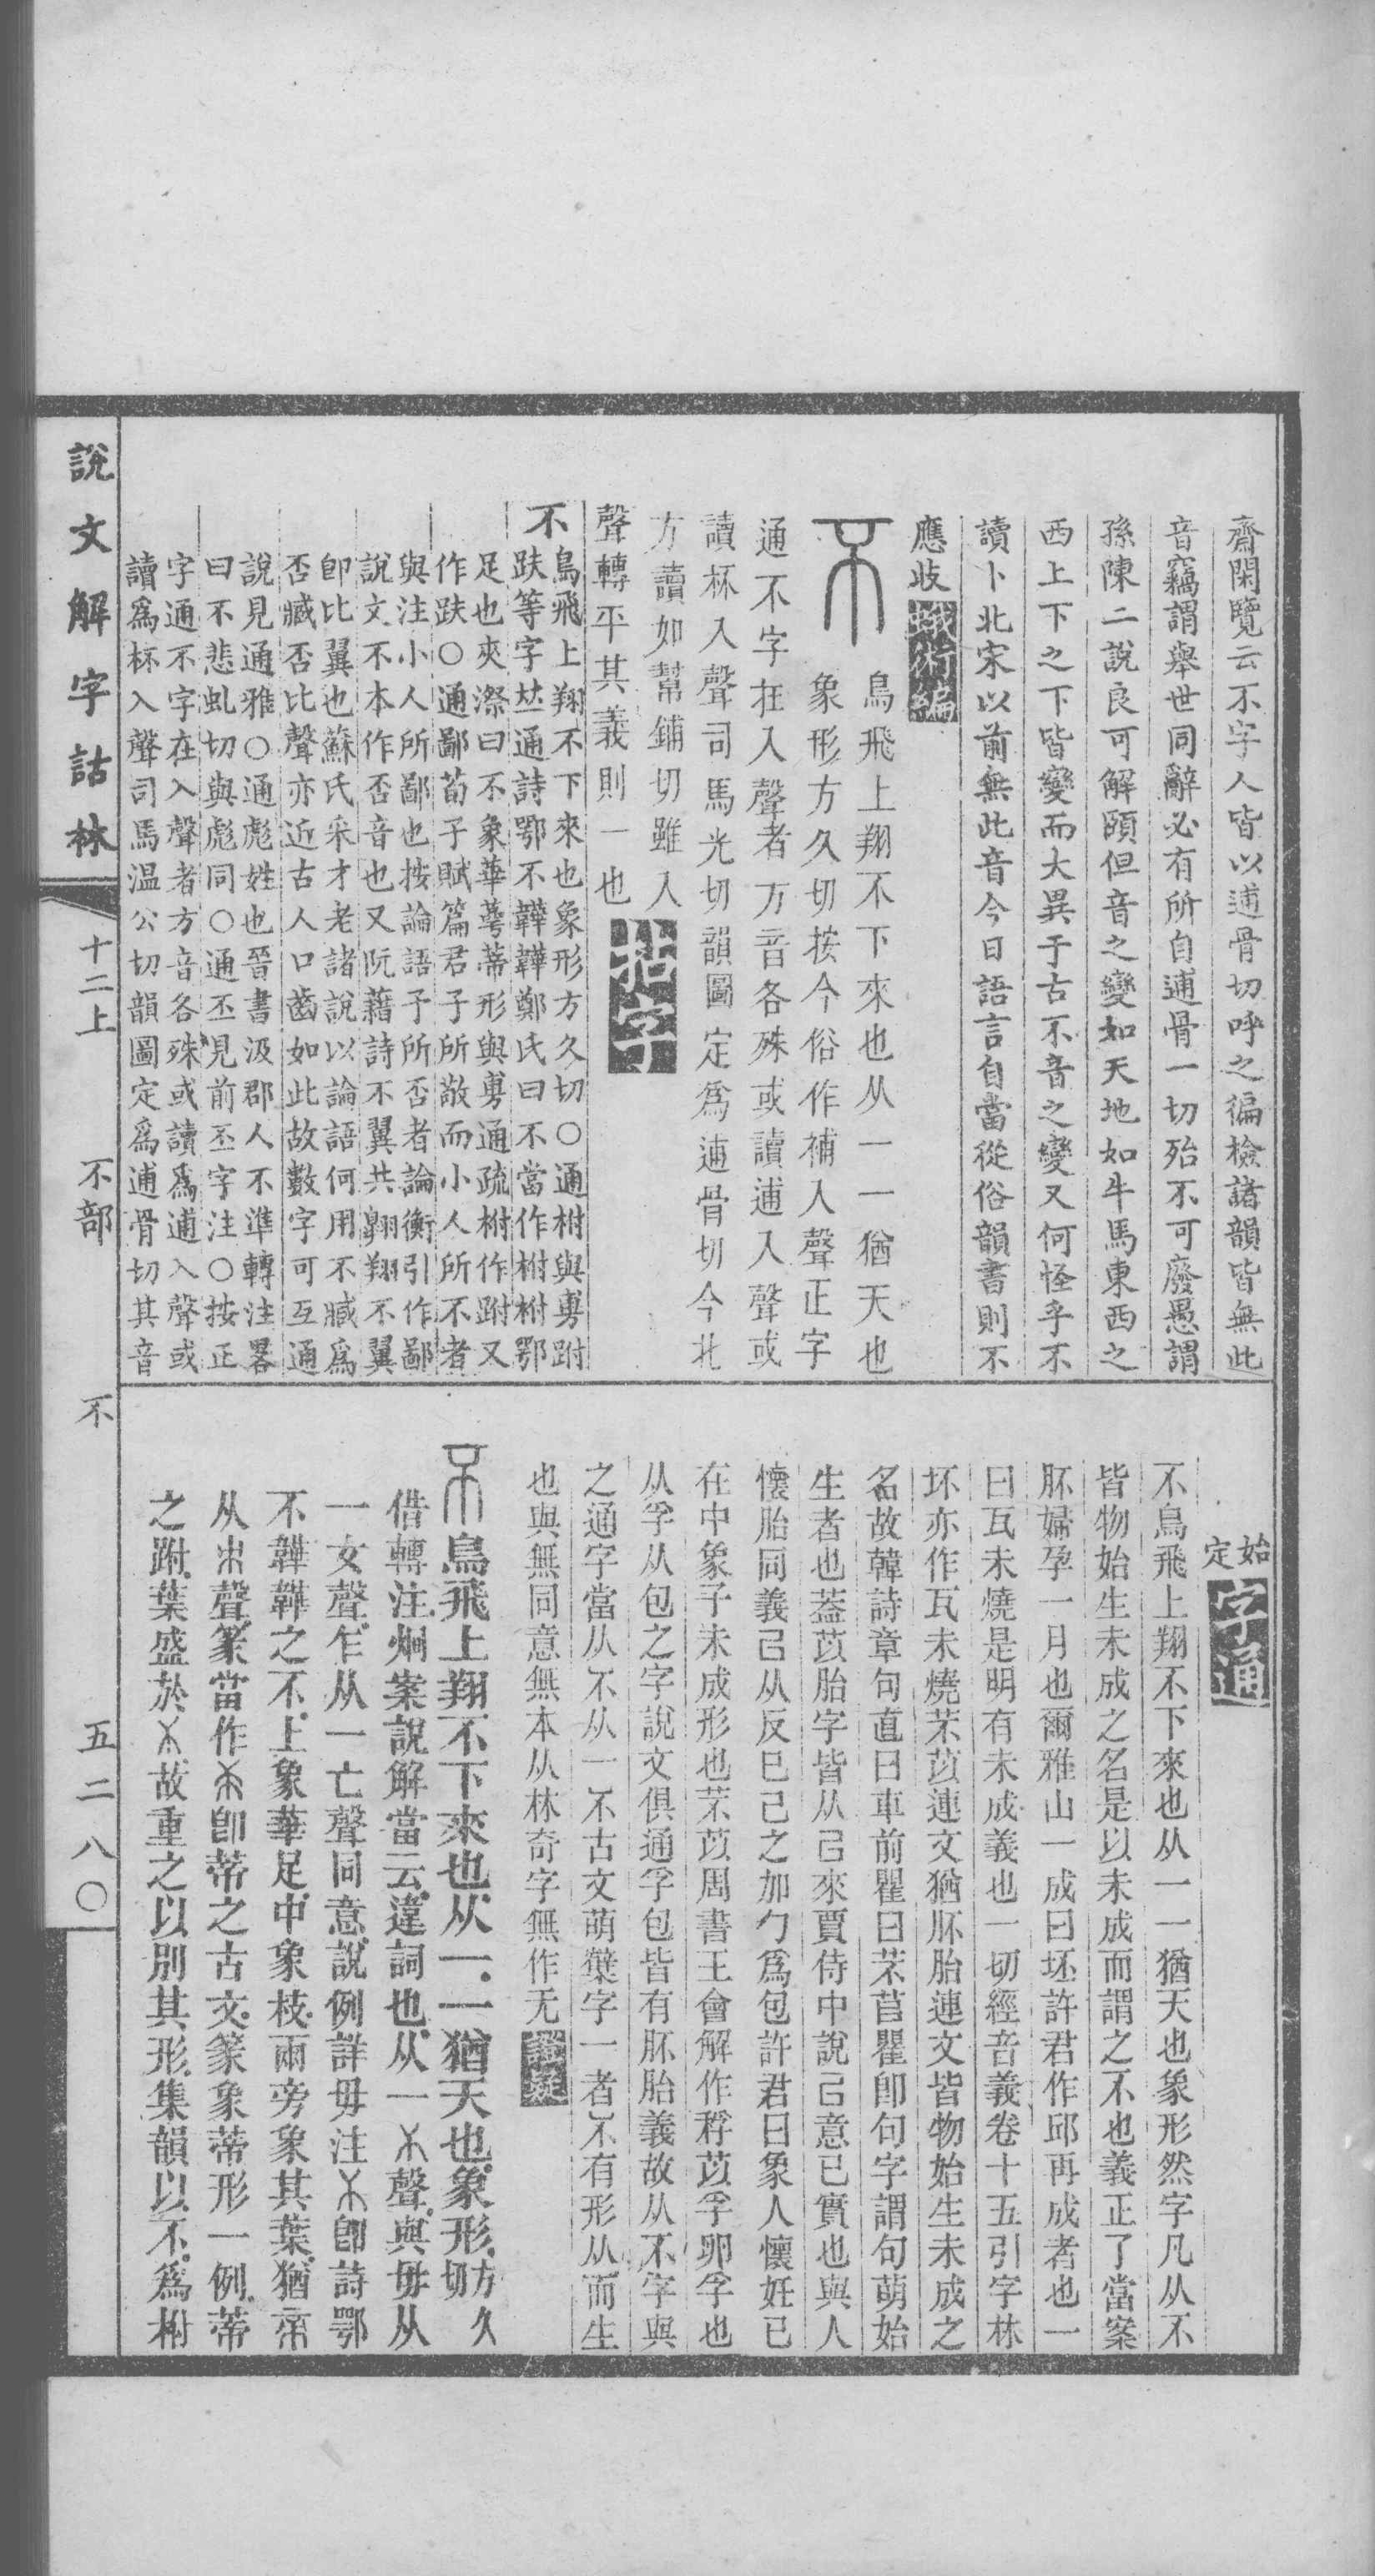 齋閑覽云不字人皆以逋骨切呼之徧檢諸韻皆無此
音竊謂舉世同辭必有所自逋骨一切殆不可廢愚謂
孫陳二說良可解頤但音之變如天地如牛馬東西之
西上下之下皆變而大異于古不音之變又何怪乎不
讀卜北宋以前無此音今日語言自當從俗韻書則不
應歧蛾術編
鳥飛上翔不下來也从一一猶天也
象形方久切按今俗作補入聲正字
通不字在入聲者方音各殊或讀逋入聲或
讀杯入聲司馬光切韻圖定爲逋骨切今北
方讀如幫鋪切雖入
聲轉平其義則一也
拈字
不
鳥飛上翔不下來也象形方久切○通柎與尃跗
趺等字𠀤通詩鄂不韡韡鄭氏曰不當作柎柎鄂
足也夾漈曰不象華萼蒂形與尃通疏柎作跗又
作趺○通鄙荀子賦篇君子所敬而小人所不者
與注小人所鄙也按論語予所否者論衡引作鄙
說文不本作否音也又阮藉詩不翼共翺翔不翼
卽比翼也蘇氏采才老諸說以論語何用不臧爲
否臧否比聲亦近古人口齒如此故數字可互通
說見通雅○通彪姓也晉書汲郡人不準轉注畧
曰不悲虬切與彪同○通丕見前丕字注○按正
字通不字在入聲者方音各殊或讀爲逋入聲或
讀爲杯入聲司馬温公切韻圖定爲逋骨切其音
始定
字通
不鳥飛上翔不下來也从一一猶天也象形然字凡从不
皆物始生未成之名是以未成而謂之不也義正了當案
肧婦孕一月也爾雅山一成曰坯許君作邱再成者也一
曰瓦未燒是明有未成義也一切經音義卷十五引字林
坏亦作瓦未燒芣苡連文猶肧胎連文皆物始生未成之
名故韓詩章句直曰車前瞿曰芣苢瞿卽句字謂句萌始
生者也葢苡胎字皆从㠯來賈侍中說㠯意已實也與人
懷胎同義㠯从反巳己之加勹爲包許君曰象人懷妊巳
在中象子未成形也芣苡周書王會解作稃苡孚卵孚也
从孚从包之字說文俱通孚包皆有肧胎義故从不字與
之通字當从不从一不古文萌櫱字一者不有形从而生
也與無同意無本从林奇字無作无證疑
鳥飛上翔不下來也从一一猶天也象形方久切
借轉注炯案說解當云違詞也从一聲與毋从
一女聲乍从一亡聲同意說例詳毋注卽詩鄂
不韡韡之不上象華足中象枝兩旁象其葉猶帝
从朿聲篆當作卽蒂之古文篆象蒂形一例蒂
之跗葉盛於故重之以別其形集韻以不爲柎
說文解字詁林
十二上
不部
不
五二八〇